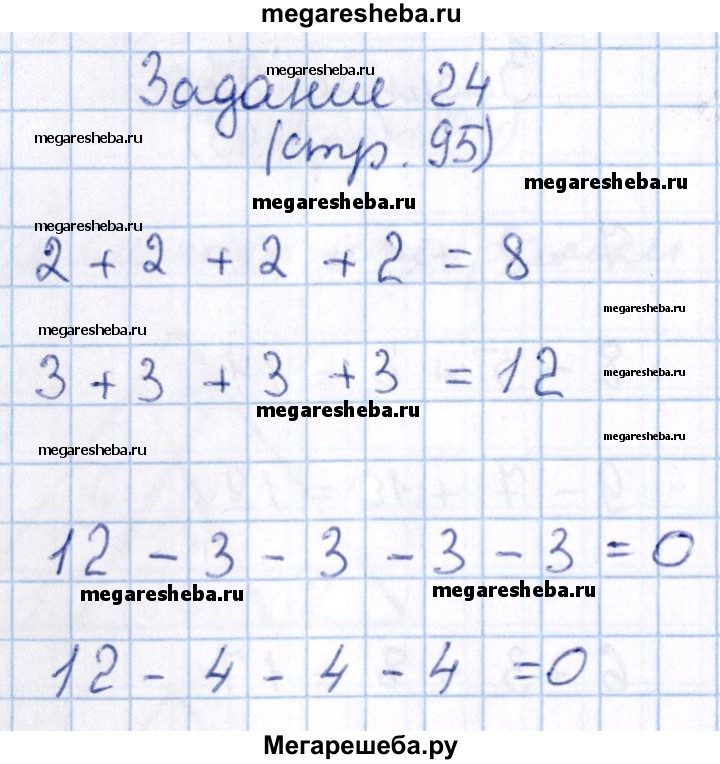 megaresheba.ru
Задание 24
megaresheba.ru
megaresheba.ru
(стр. 95)
megaresheba.ru
megaresheba.ru
megaresheba.ru
2 + 2 + 2 + 2 = 8
megaresheba.ru
megaresheba.ru
3 + 3 + 3 + 3 = 12
megaresheba.ru
megaresheba.ru
megaresheba.ru
megaresheba.ru
12 - 3 - 3 - 3 - 3 = 0
megaresheba.ru
megaresheba.ru
12 - 4 - 4 - 4 = 0
Мегарешеба.ру